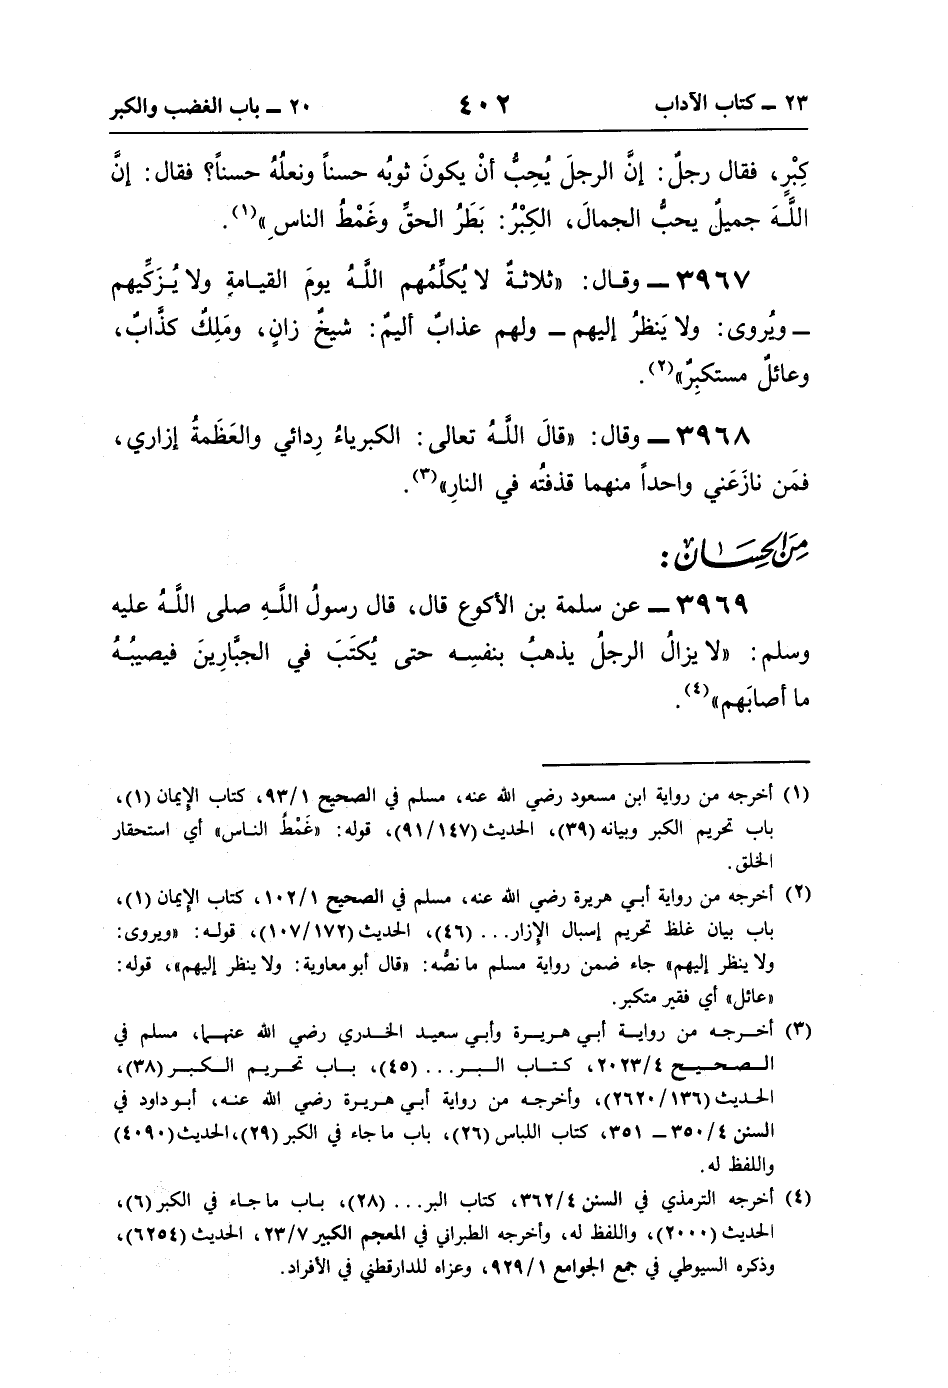 ٢٣ ــ كتاب الآداب ٤٠٢ ٢٠ ــ باب الغضب والكبر
كِبْرٍ، فقال رجلٌ: إنَّ الرجلَ يُحِبُّ أنْ يكونَ ثوبُه حسناً ونعلُهُ حسناً؟ فقال: إنَّ
اللَّهَ جميلٌ يحبُّ الجمالَ، الكِبْرُ: بَطَرُ الحقِّ وغَمْطُ الناسِ»(١).
٣٩٦٧ ــ وقال: «ثلاثةٌ لا يُكلِّمُهم اللَّهُ يومَ القيامةِ ولا يُزَكِّيهم
ــ ويُروى: ولا يَنظرُ إليهم ــ ولهم عذابٌ أليمٌ: شيخٌ زانٍ، ومَلِكٌ كذَّابٌ،
وعائلٌ مستكبِرٌ»(٢).
٣٩٦٨ ــ وقال: «قالَ اللَّهُ تعالى: الكبرياءُ رِدائي والعَظَمةُ إزاري،
فمَن نازَعَني واحداً منهما قذفتُه في النارِ»(٣).
مِنَ الْحِسَان:
٣٩٦٩ ــ عن سلمة بن الأكوع قال، قال رسولُ اللَّهِ صلى اللَّهُ عليه
وسلم: «لا يزالُ الرجلُ يذهبُ بنفسِه حتى يُكتَبَ في الجبَّارينَ فيصيبُهُ
ما أصابَهم»(٤).
(١) أخرجه من رواية ابن مسعود رضي الله عنه، مسلم في الصحيح ٩٣/١، كتاب الإيمان (١)،
باب تحريم الكبر وبيانه (٣٩)، الحديث (٩١/١٤٧)، قوله: «غَمْطُ الناس» أي استحقار
الخلق.
(٢) أخرجه من رواية أبي هريرة رضي الله عنه، مسلم في الصحيح ١٠٢/١، كتاب الإيمان (١)،
باب بيان غلظ تحريم إسبال الإزار... (٤٦)، الحديث (١٠٧/١٧٢)، قوله: «ويروى:
ولا ينظر إليهم» جاء ضمن رواية مسلم ما نصُّه: «قال أبو معاوية: ولا ينظر إليهم»، قوله:
«عائل» أي فقير متكبر.
(٣) أخرجه من رواية أبي هريرة وأبي سعيد الخدري رضي الله عنهما، مسلم في
الصحيح ٢٠٢٣/٤، كتاب البر... (٤٥)، باب تحريم الكبر (٣٨)،
الحديث (٢٦٢٠/١٣٦)، وأخرجه من رواية أبي هريرة رضي الله عنه، أبو داود في
السنن ٣٥٠/٤ ــ ٣٥١، كتاب اللباس (٢٦)، باب ما جاء في الكبر (٢٩)،الحديث (٤٠٩٠)
واللفظ له.
(٤) أخرجه الترمذي في السنن ٣٦٢/٤، كتاب البر... (٢٨)، باب ما جاء في الكبر (٦)،
الحديث (٢٠٠٠)، واللفظ له، وأخرجه الطبراني في المعجم الكبير ٢٣/٧، الحديث (٦٢٥٤)،
وذكره السيوطي في جمع الجوامع ٩٢٩/١، وعزاه للدارقطني في الأفراد.